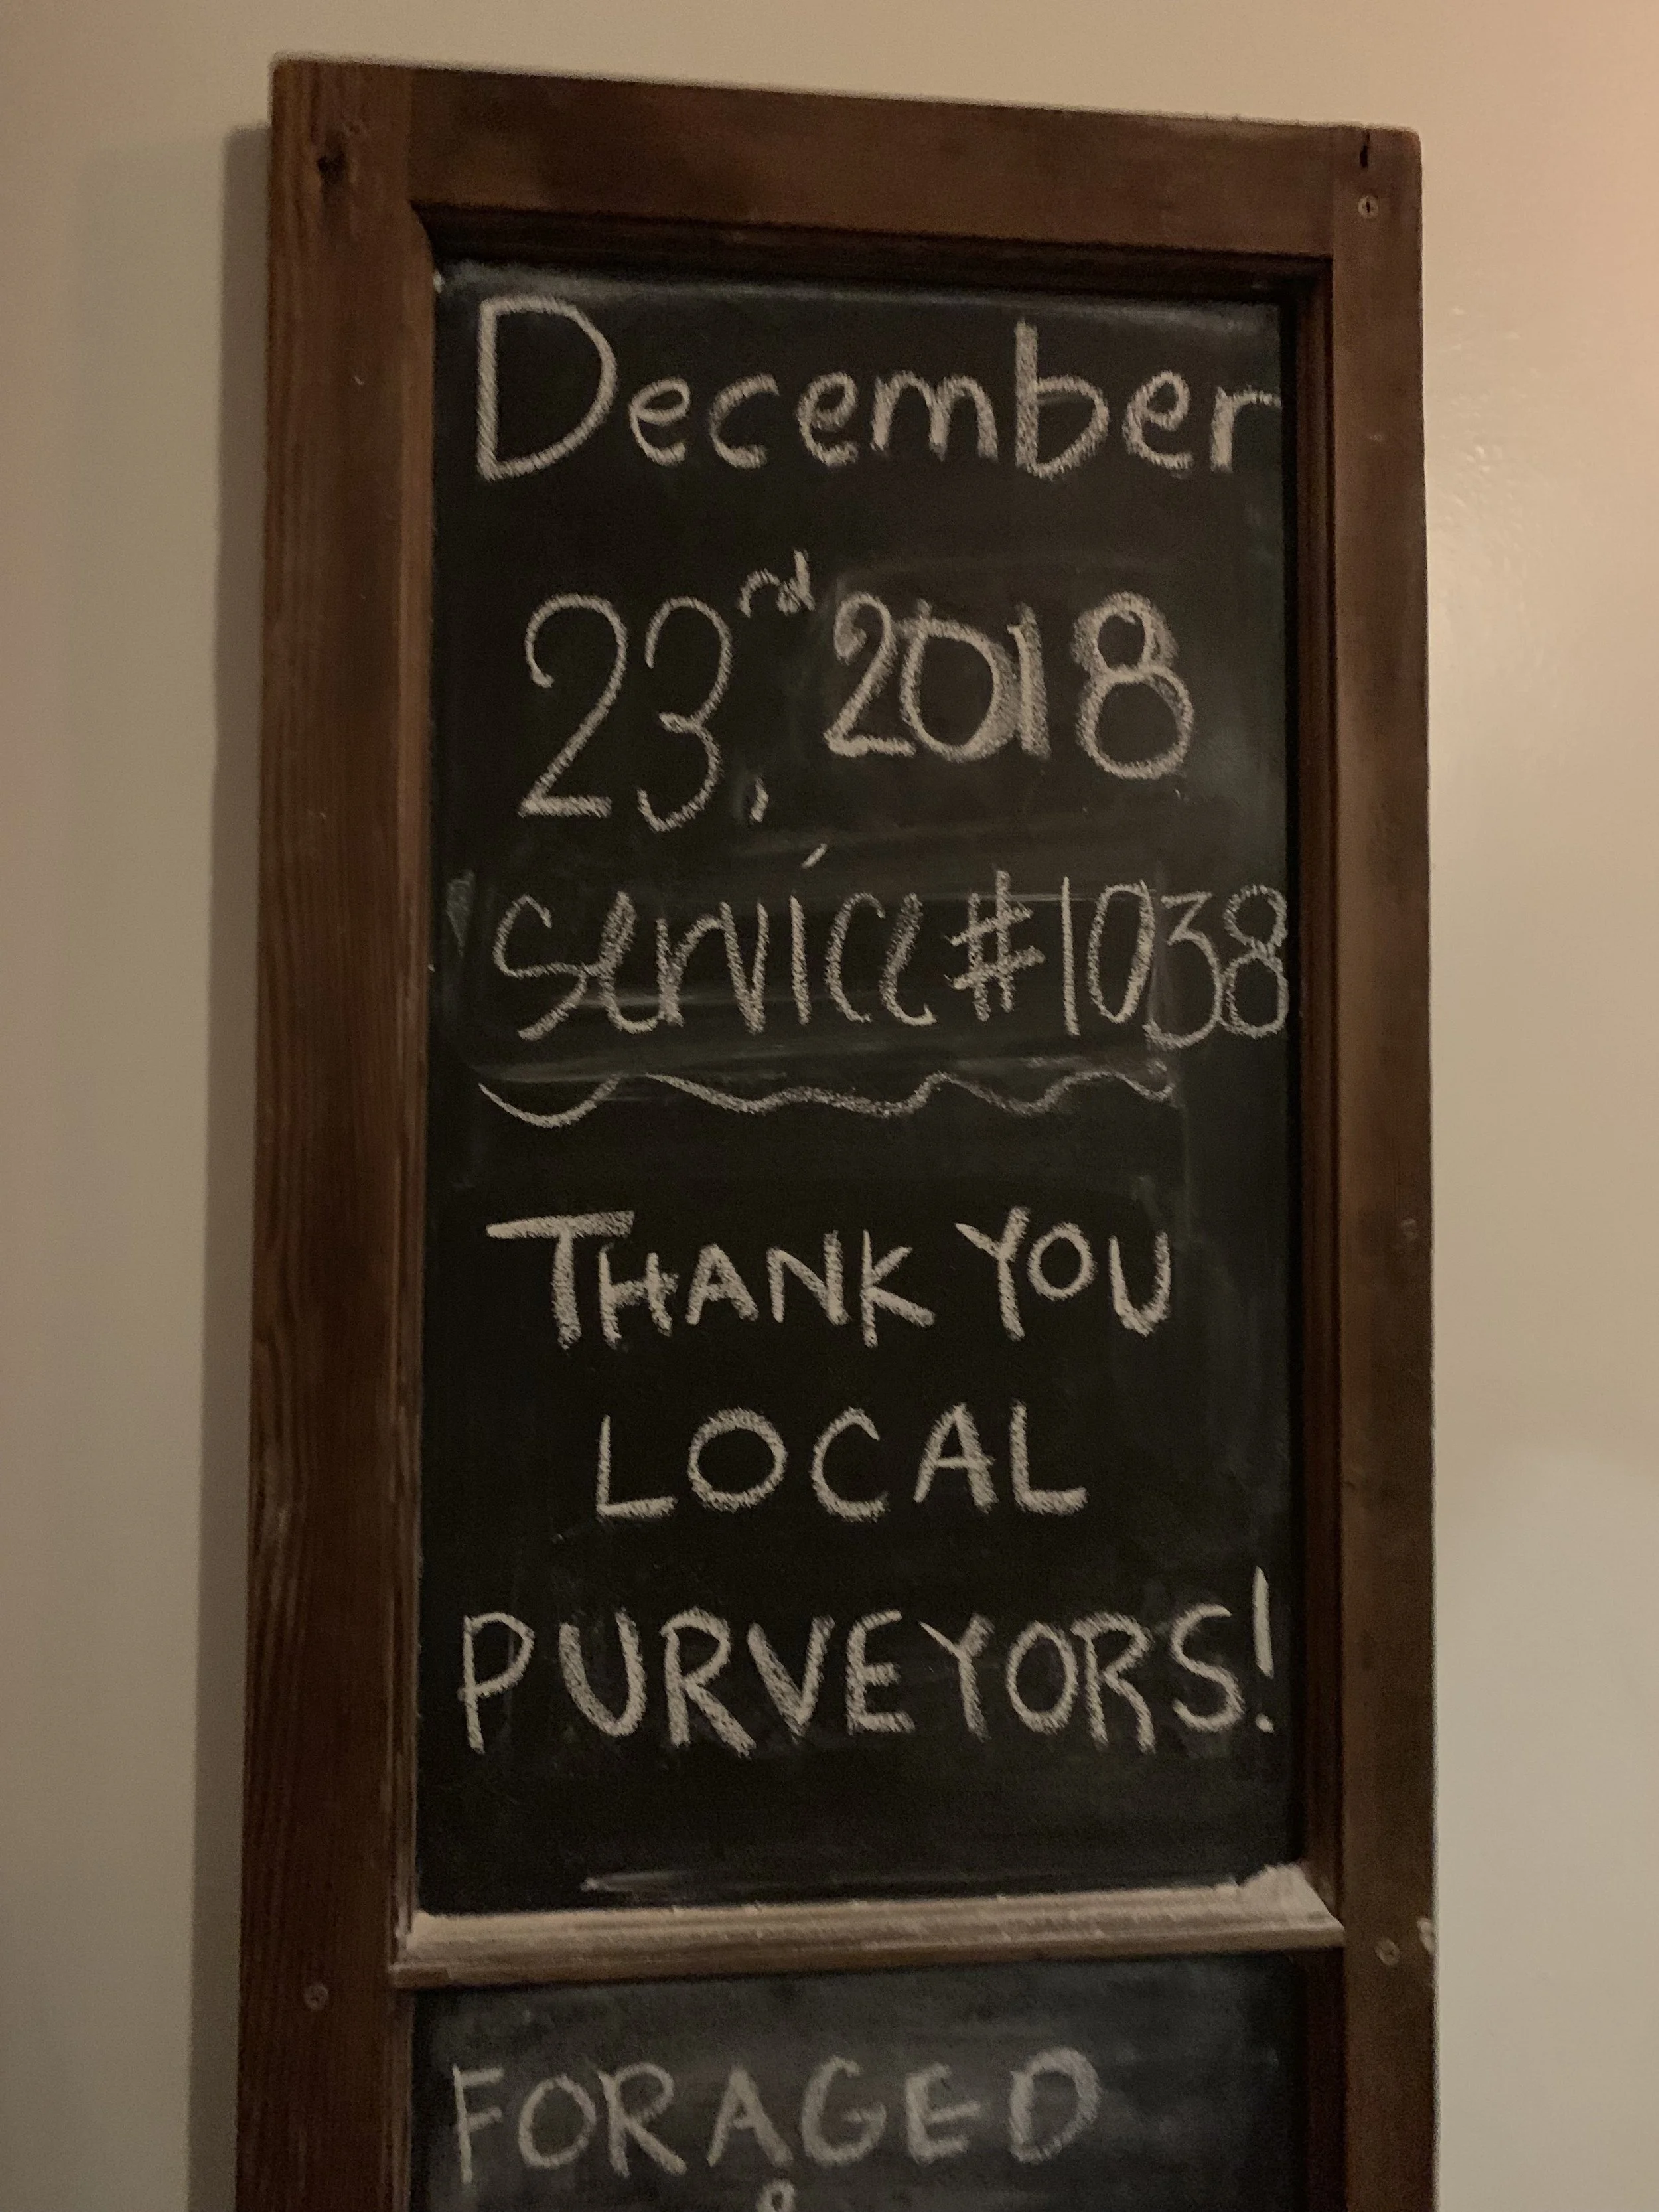 December
23rd, 2018
service #1038
THANK YOU
LOCAL
PURVEYORS!
FORAGED